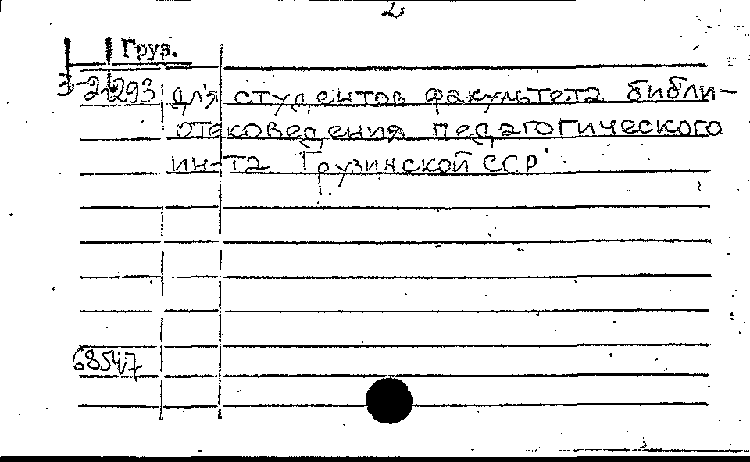 2
Груз.
3-2-293 для студентов факультета библи-
отековедения педагогического
ин-та Грузинской ССР
68547